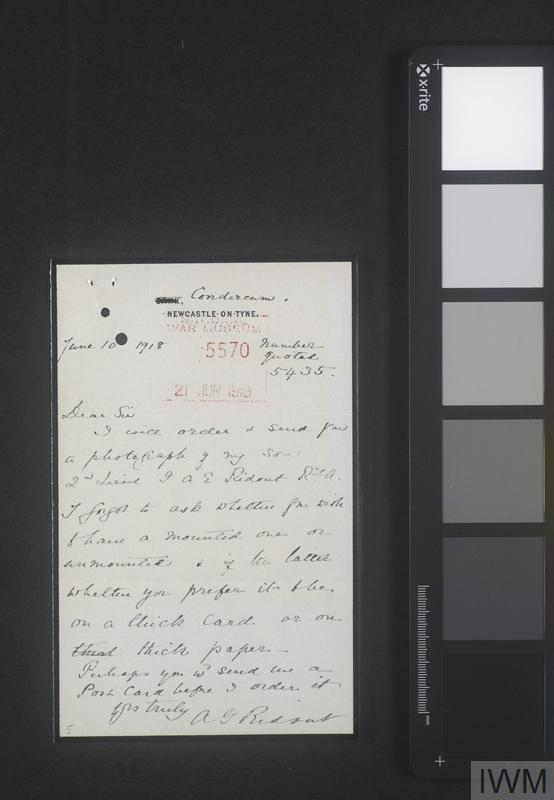 Condercum.
NEWCASTLE-ON-TYNE.
NATIONAL
WAR MUSEUM
June 10 1918
5570
number
quoted
5435.
21 JUN 1918
Dear Sir
I will order & send you
a photograph of my son
2nd Lieut G A E Ridout RFA.
I forgot to ask whether you wish
to have a mounted one or
unmounted & if the latter
whether you prefer it to be
on a thick card or on
thick paper –
Perhaps you wd send me a
Post Card before I order it
yrs truly A G Ridout
5
x-rite
mm
IWM